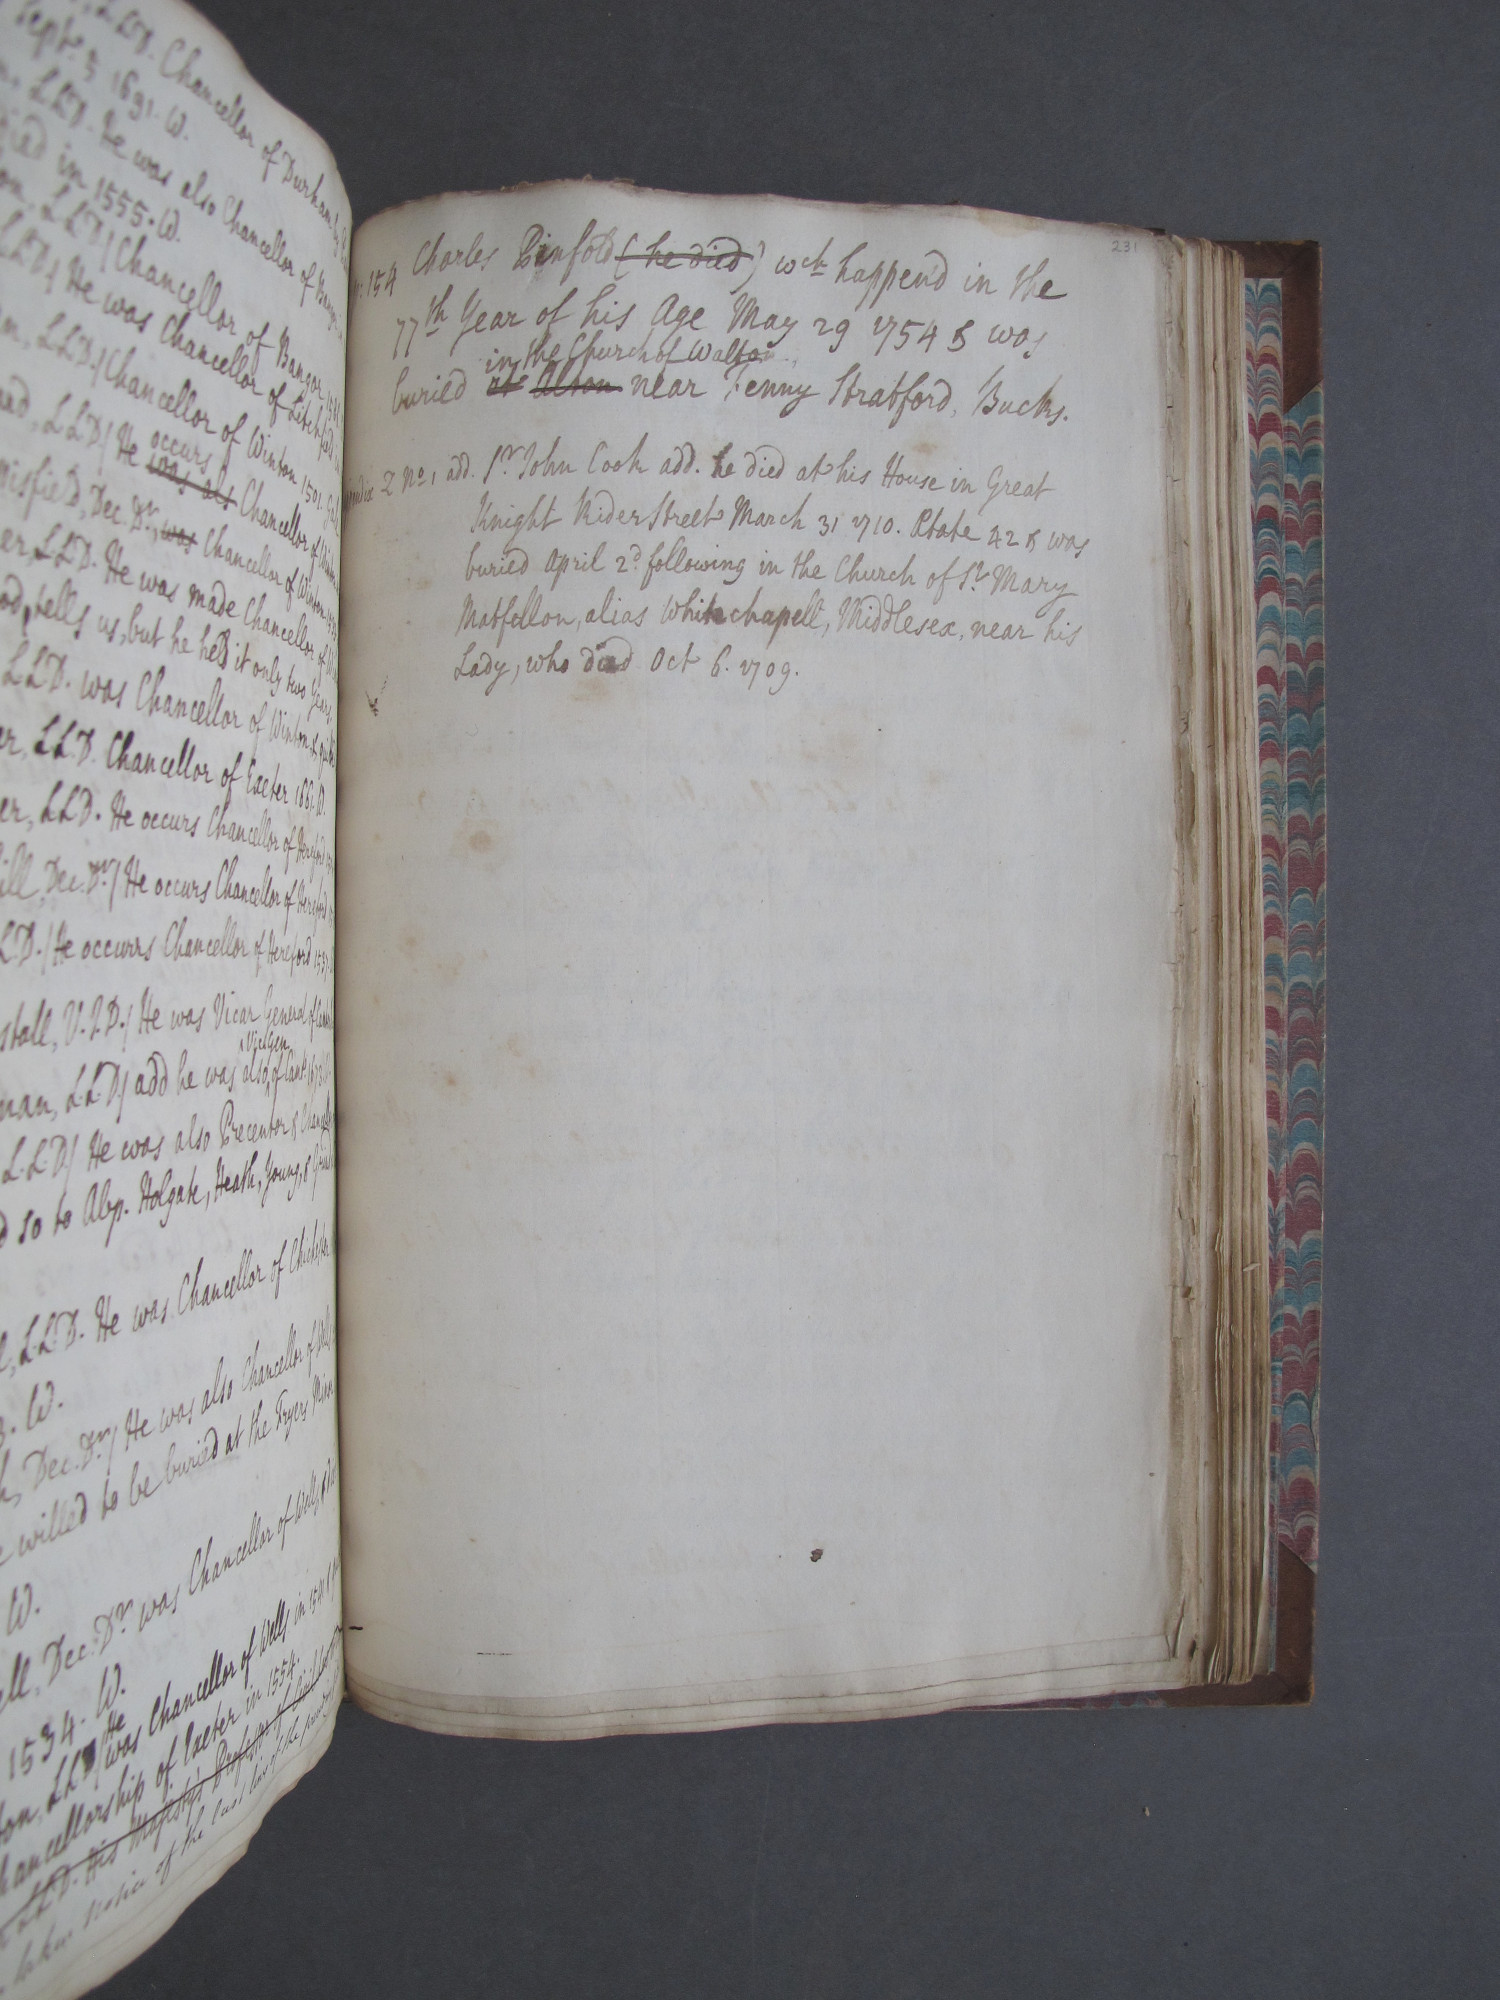 L.L.D. Chancellor of Durham
Sept. 5 1691. W.
L.L.D. He was also Chancellor of Bangor
died in 1555. W.
L.L.D/ Chancellor of Bangor
L.L.D/ He was Chancellor of Litchfield
L.L.D./ Chancellor of Winton 1501.
L.L.D/ He occurs was als Chancellor of
Dec. Dr, was Chancellor of Winton
L.L.D. He was made Chancellor of
tells us, but he held it only two years
L.L.D. was Chancellor of Winton, &
er, L.L.D. Chancellor of Exeter 1661. W.
er, L.L.D. He occurs Chancellor of Hereford
ill, Dec. Dr/ He occurs Chancellor of Hereford
L.D./ He occurrs Chancellor of Hereford 1537.
stall, V.I.D./ He was Vicar General of
man, L.L.D/ add he was also Vic. Gen. of Cant.
L.L.D/ He was also Precentor &
so to Abp. Holgate, Heath, Young, &
L.L.D. He was Chancellor of Chichester
W.
h, Dec. Dr/ He was also Chancellor of
willed to be buried at the Fryers
W.
ell, Dec. Dr was Chancellor of Wells,
1534. W.
ton, L.L.D/ He was Chancellor of Wells in 1541
hancellorship of Exeter in 1554.
L.L.D. His Majesty's Professor of Civil
taken notice of the last line of the
231
154 Charles Pinfold (he died) wch happen'd in the
77th Year of his Age May 29 1754 & was
in the Church of Walton
buried at Alton near Fenny Stratford, Bucks.
Z No 1 add. Sr John Cook add. he died at his House in Great
Knight Rider Street March 31 1710. Ætate 42 & was
buried April 2d following in the Church of St Mary
Matfellon, alias Whitechapell, Middlesex, near his
Lady, who died Oct 6. 1709.